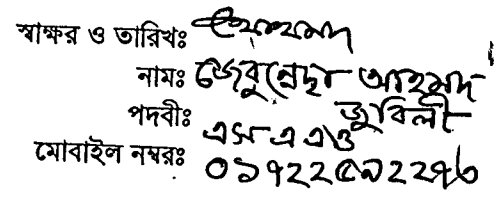 স্বাক্ষর ও তারিখঃ
নামঃ জেবুন্নেছা আহমদ
পদবীঃ এস এ এও জুবিলী
মোবাইল নম্বরঃ ০১৭২২৫৯২২৭৬